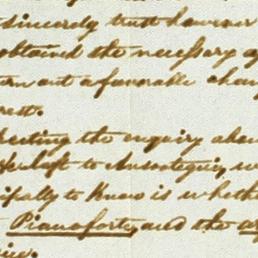 sincerely trust however
obtained the necessary a
urn out a favorable chan
rest.
ecting the enquiry abou
left to
ipally to Know is wheth
Pianoforte, and the